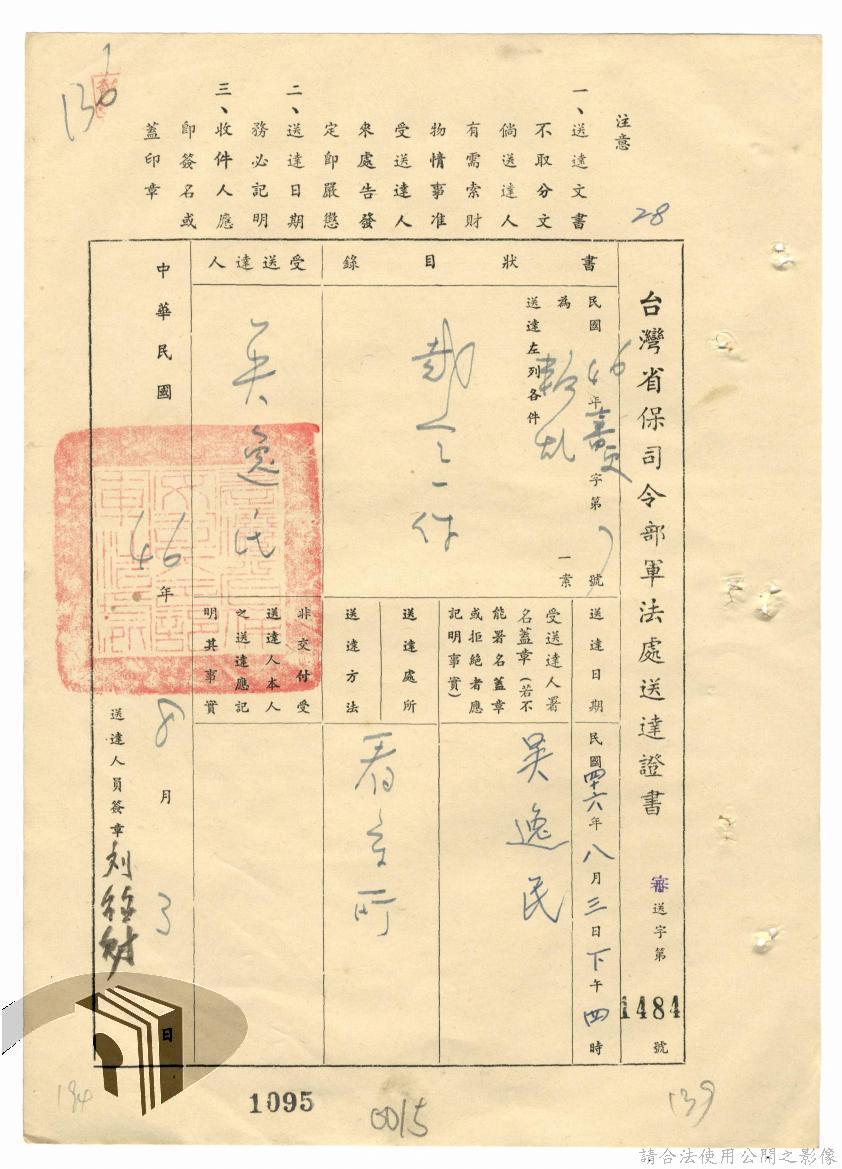 注意
一、送達文書
不取分文
倘送達人
有需索財
物情事准
受送達人
來處告發
定即嚴懲
二、送達日期
務必記明
三、收件人應
即簽名或
蓋印章
28
台灣省保司令部軍法處送達證書
審送字第1484號
書狀目錄
民國46年字第號
為叛亂一案
送達左列各件
裁定一件
受送達人
吳逸民
送達日期
民國四十六年八月三日下午四時
受送達人署
名蓋章(若不
能署名蓋章
或拒絕者應
記明事實)
吳逸民
送達處所
送達方法
看守所
非交付受
送達人本人
之送達應記
明其事實
中華民國46年8月3日
送達人員簽章
1095
0015
139
請合法使用公開之影像